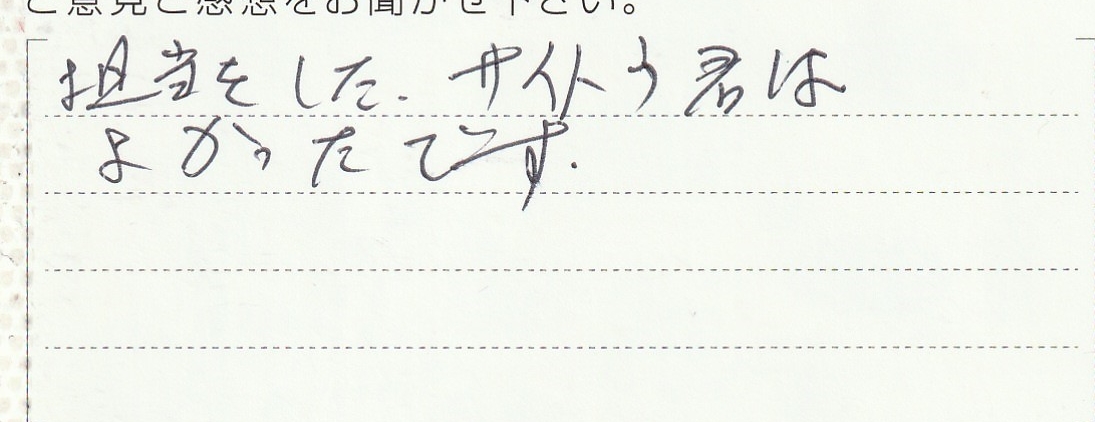 ご意見ご感想をお聞かせ下さい。
担当をした.サイトう君は
よかったです.